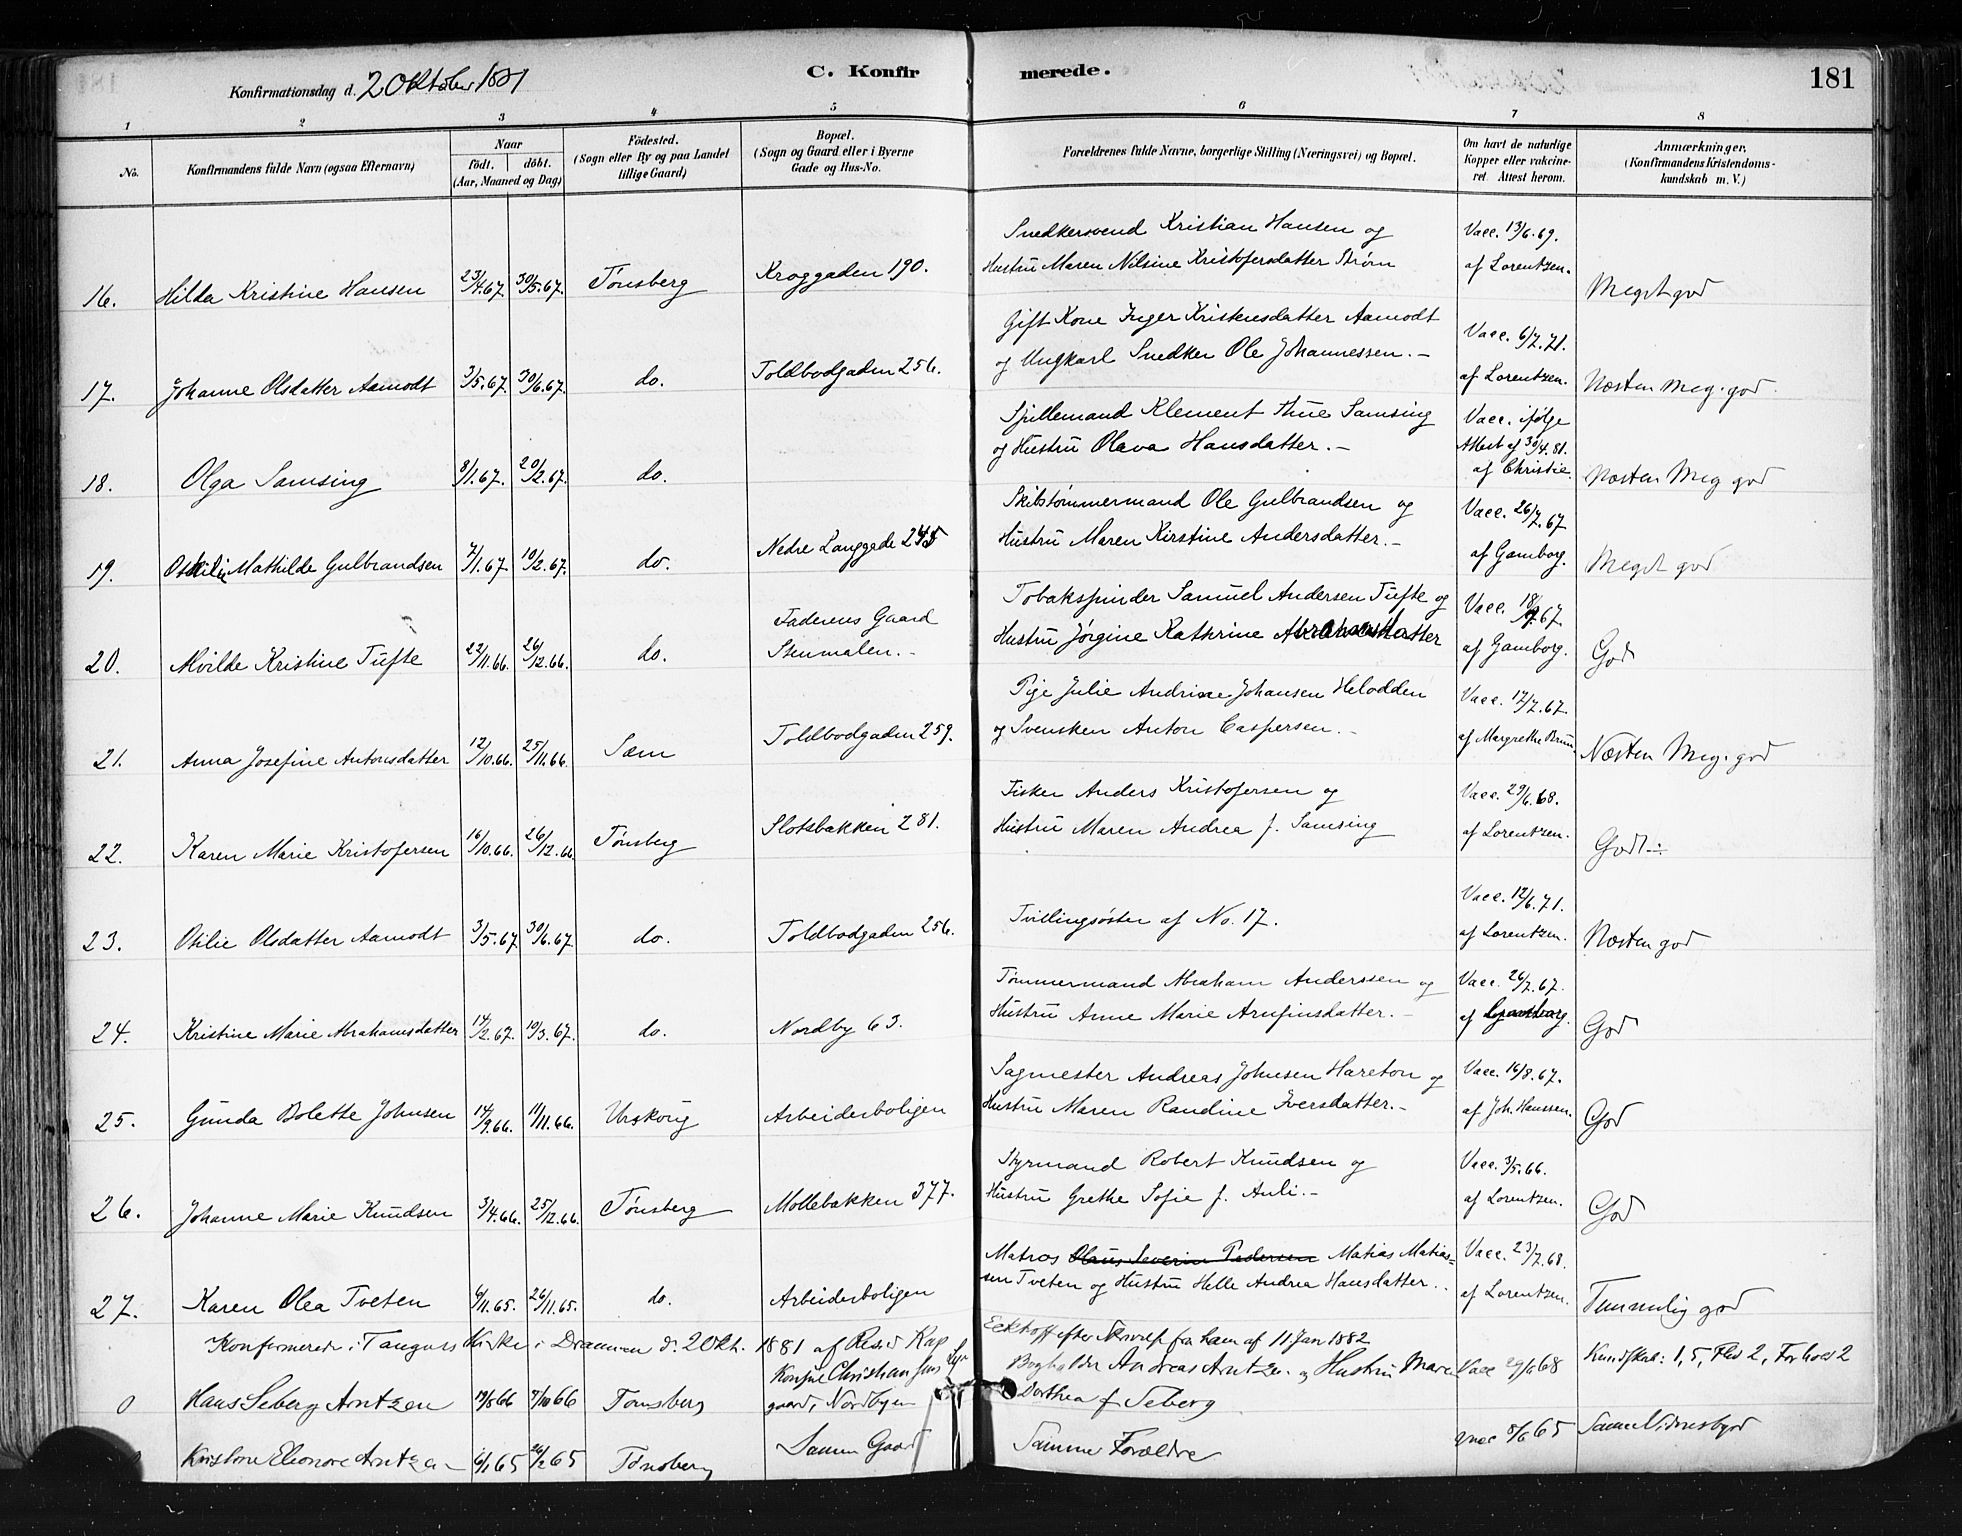 Konfirmationsdag d. 2 Oktober 1881
C. Konfirmerede.
181
1 2 3 4 5 6 7 8
No.
Konfirmandens fulde Navn (ogsaa Efternavn)
Naar
født. døbt.
(Aar, Maaned og Dag)
Fødested.
(Sogn eller By og paa Landet
tillige Gaard)
Bopæl.
(Sogn og Gaard eller i Byerne
Gade og Hus-No.
Forældrenes fulde Navne, borgerlige Stilling (Næringsvei) og Bopæl.
Om havt de naturlige
Kopper eller vakcine-
ret. Attest herom.
Anmærkninger.
(Konfirmandens Kristendoms-
kundskab m. V.)
Snedkersvend Kristian Hansen og Vacc. 13/6.69.
16. Hilda Kristine Hansen 23/4.67. 30/5.67. Tønsberg Kroggaden 190. Hustru Maren Nilsine Kristofersdatter Strøm af Lorentzen. Meget god
Gift Kone Inger Kristensdatter Aamodt Vacc. 6/7.71.
17. Johanne Olsdatter Aamodt 3/5.67. 30/6.67. do. Toldbodgaden 256. og Ungkarl Snedker Ole Johannessen.- af Lorentzen. Næsten Meg. god
Spillemand Klement Thue Samsing Vacc. ifølge
og Hustru Olava Hansdatter.- Attest af 30/4.81.
18. Olga Samsing 8/1.67. 20/2.67. do. af Christie Næsten Meg god
Skibstømmermand Ole Gulbrandsen og Vacc. 26/7.67.
19. Mathilde Gulbrandsen 7/1.67. 10/2.67. do. Nedre Langgade Hustru Maren Kirstine Andersdatter.- af Gamborg. Meget god
Faderens Gaard Tobakspinder Samuel Andersen Tufte og Vacc. 67.
20. Alvilde Kristine Tufte 22/11.66. 26/12.66. do. Stenmalen.- Hustru Jørgine Kathrine Abrahamsdatter af Gamborg. God
Pige Julie Andrine Johansen Helodden Vacc. 17/7.67.
21. Anna Josefine Antonsdatter 12/10.66. 25/11.66. Sæm Toldbodgaden 259. og Svensken Anton Caspersen.- af Margrethe Brun. Næsten Meg. god
Fisker Anders Kristofersen og Vacc. 29/6.68.
22. Karen Marie Kristofersen 16/10.66. 26/12.66 Tønsberg Slotsbakken 281. Hustru Maren Andrea f. Samsing af Lorentzen. Godt.
Vacc. 12/6.71.
23. Otilie Olsdatter Aamodt 3/5.67 30/6.67 do. Toldbodgaden 256. Tvillingsøster af No. 17. af Lorentzen. Næsten god
Tømmermand Abraham Anderssen og Vacc. 26/7.67.
24. Kristine Marie Abrahamsdatter 14/2.67. 10/3.67. do. Nordby 63. Hustru Anne Marie Arnfinsdatter.- af Gamborg. God
Sagmester Andreas Johnsen Hareton og Vacc. 16/8.67.
25. Gunda Bolette Johnsen 14/9.66. 11/11.66. Urskoug Arbeiderboligen Hustru Maren Randine Iversdatter.- af Joh. Hanssen. God
Styrmand Robert Knudsen og Vacc. 3/5.66.
26. Johanne Marie Knudsen 3/4.66. 25/12.66. Tønsberg Møllebakken 377. Hustru Grethe Sofie f. Auli.- af Lorentzen. God
Matros Olaus Severin Pedersen Matias Matias= Vacc. 23/7.68.
27. Karen Olea Tveten 4/11.65. 26/11.65. do. Arbeiderboligen sen Tveten og Hustru Helle Andrea Hansdatter.. af Lorentzen. Temmelig god
Konfirmerede i Tangens Kirke i Drammen d. 2 Okt. 1881 af Resid Kap Eckhoff efter Skrivelse fra ham af 11 Jan 1882
Konsul Christian Bogholder Andreas Arntzen og Hustru Maren Vacc 68 Kundskab: 1,5, Flid 2, Forhold 2
Hans Seberg Arntzen 19/8 66 7/10 66 Tønsberg gaard, Nordbyen Dorthea f Seberg
Kristine Eleonore Arntzen 6/1 65 26/2 65 Tønsberg Samme Gaard Samme Forældre vacc 8/6 65 Samme Vidnesbyrd